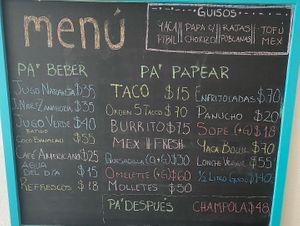 menú
GUISOS
YACA PIBIL
PAPA C/ CHORIZO
RAJAS POBLANAS
TOFÚ MEX
PA' BEBER
JUGO NARANJA $35
J. NAR/ZANAHORIA $35
JUGO VERDE $40
COCO BANACAO $55
CAFÉ AMERICANO $25
AGUA DEL DÍA $15
REFRESCOS $18
PA' PAPEAR
TACO $15
ORDEN 5 TACOS $70
BURRITO $75
MEX | FRESH
QUESADILLA (+G) $30
OMELETTE (+G) $60
MOLLETES $50
ENFRIJOLADAS $70
PANUCHO $20
SOPE (+G) $18
YACA BOWL $70
LONCHE VERDE $55
½ LITRO GUISO $140
PA' DESPUÉS
CHAMPOLA $48